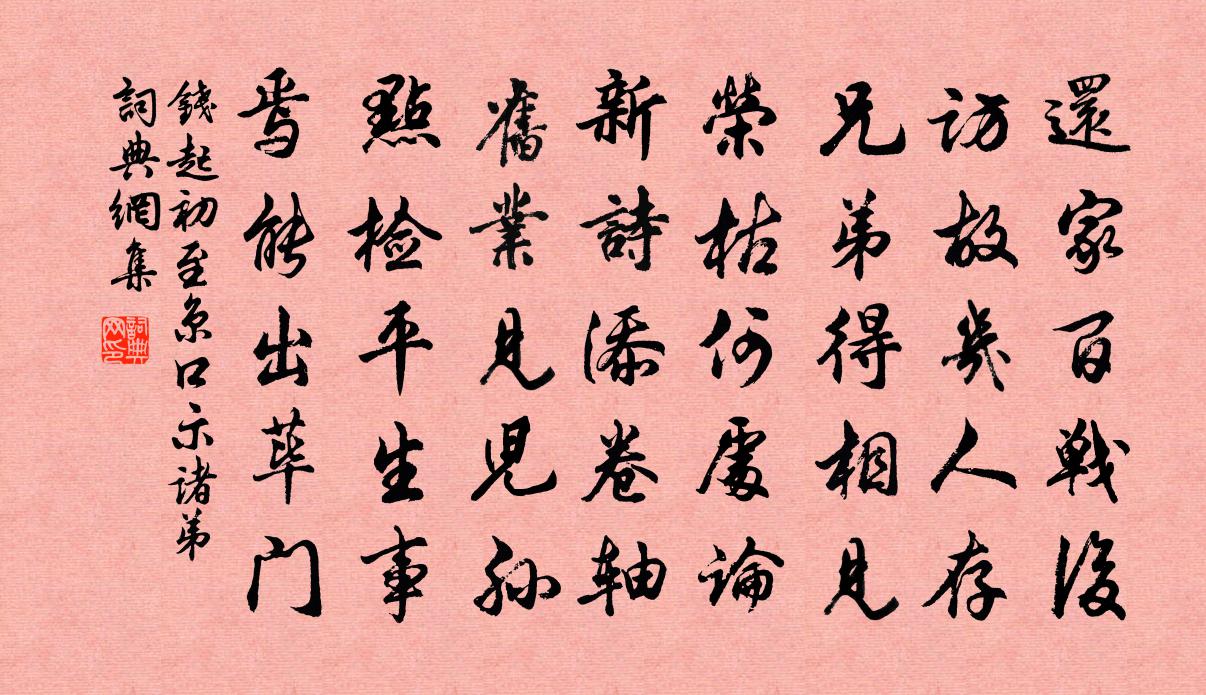 還家百戰後
訪故幾人存
兄弟得相見
榮枯何處論
新詩添卷軸
舊業見兒孫
點檢平生事
焉能出蓽門
錢起初至京口示諸弟
詞典網集
詞典網印